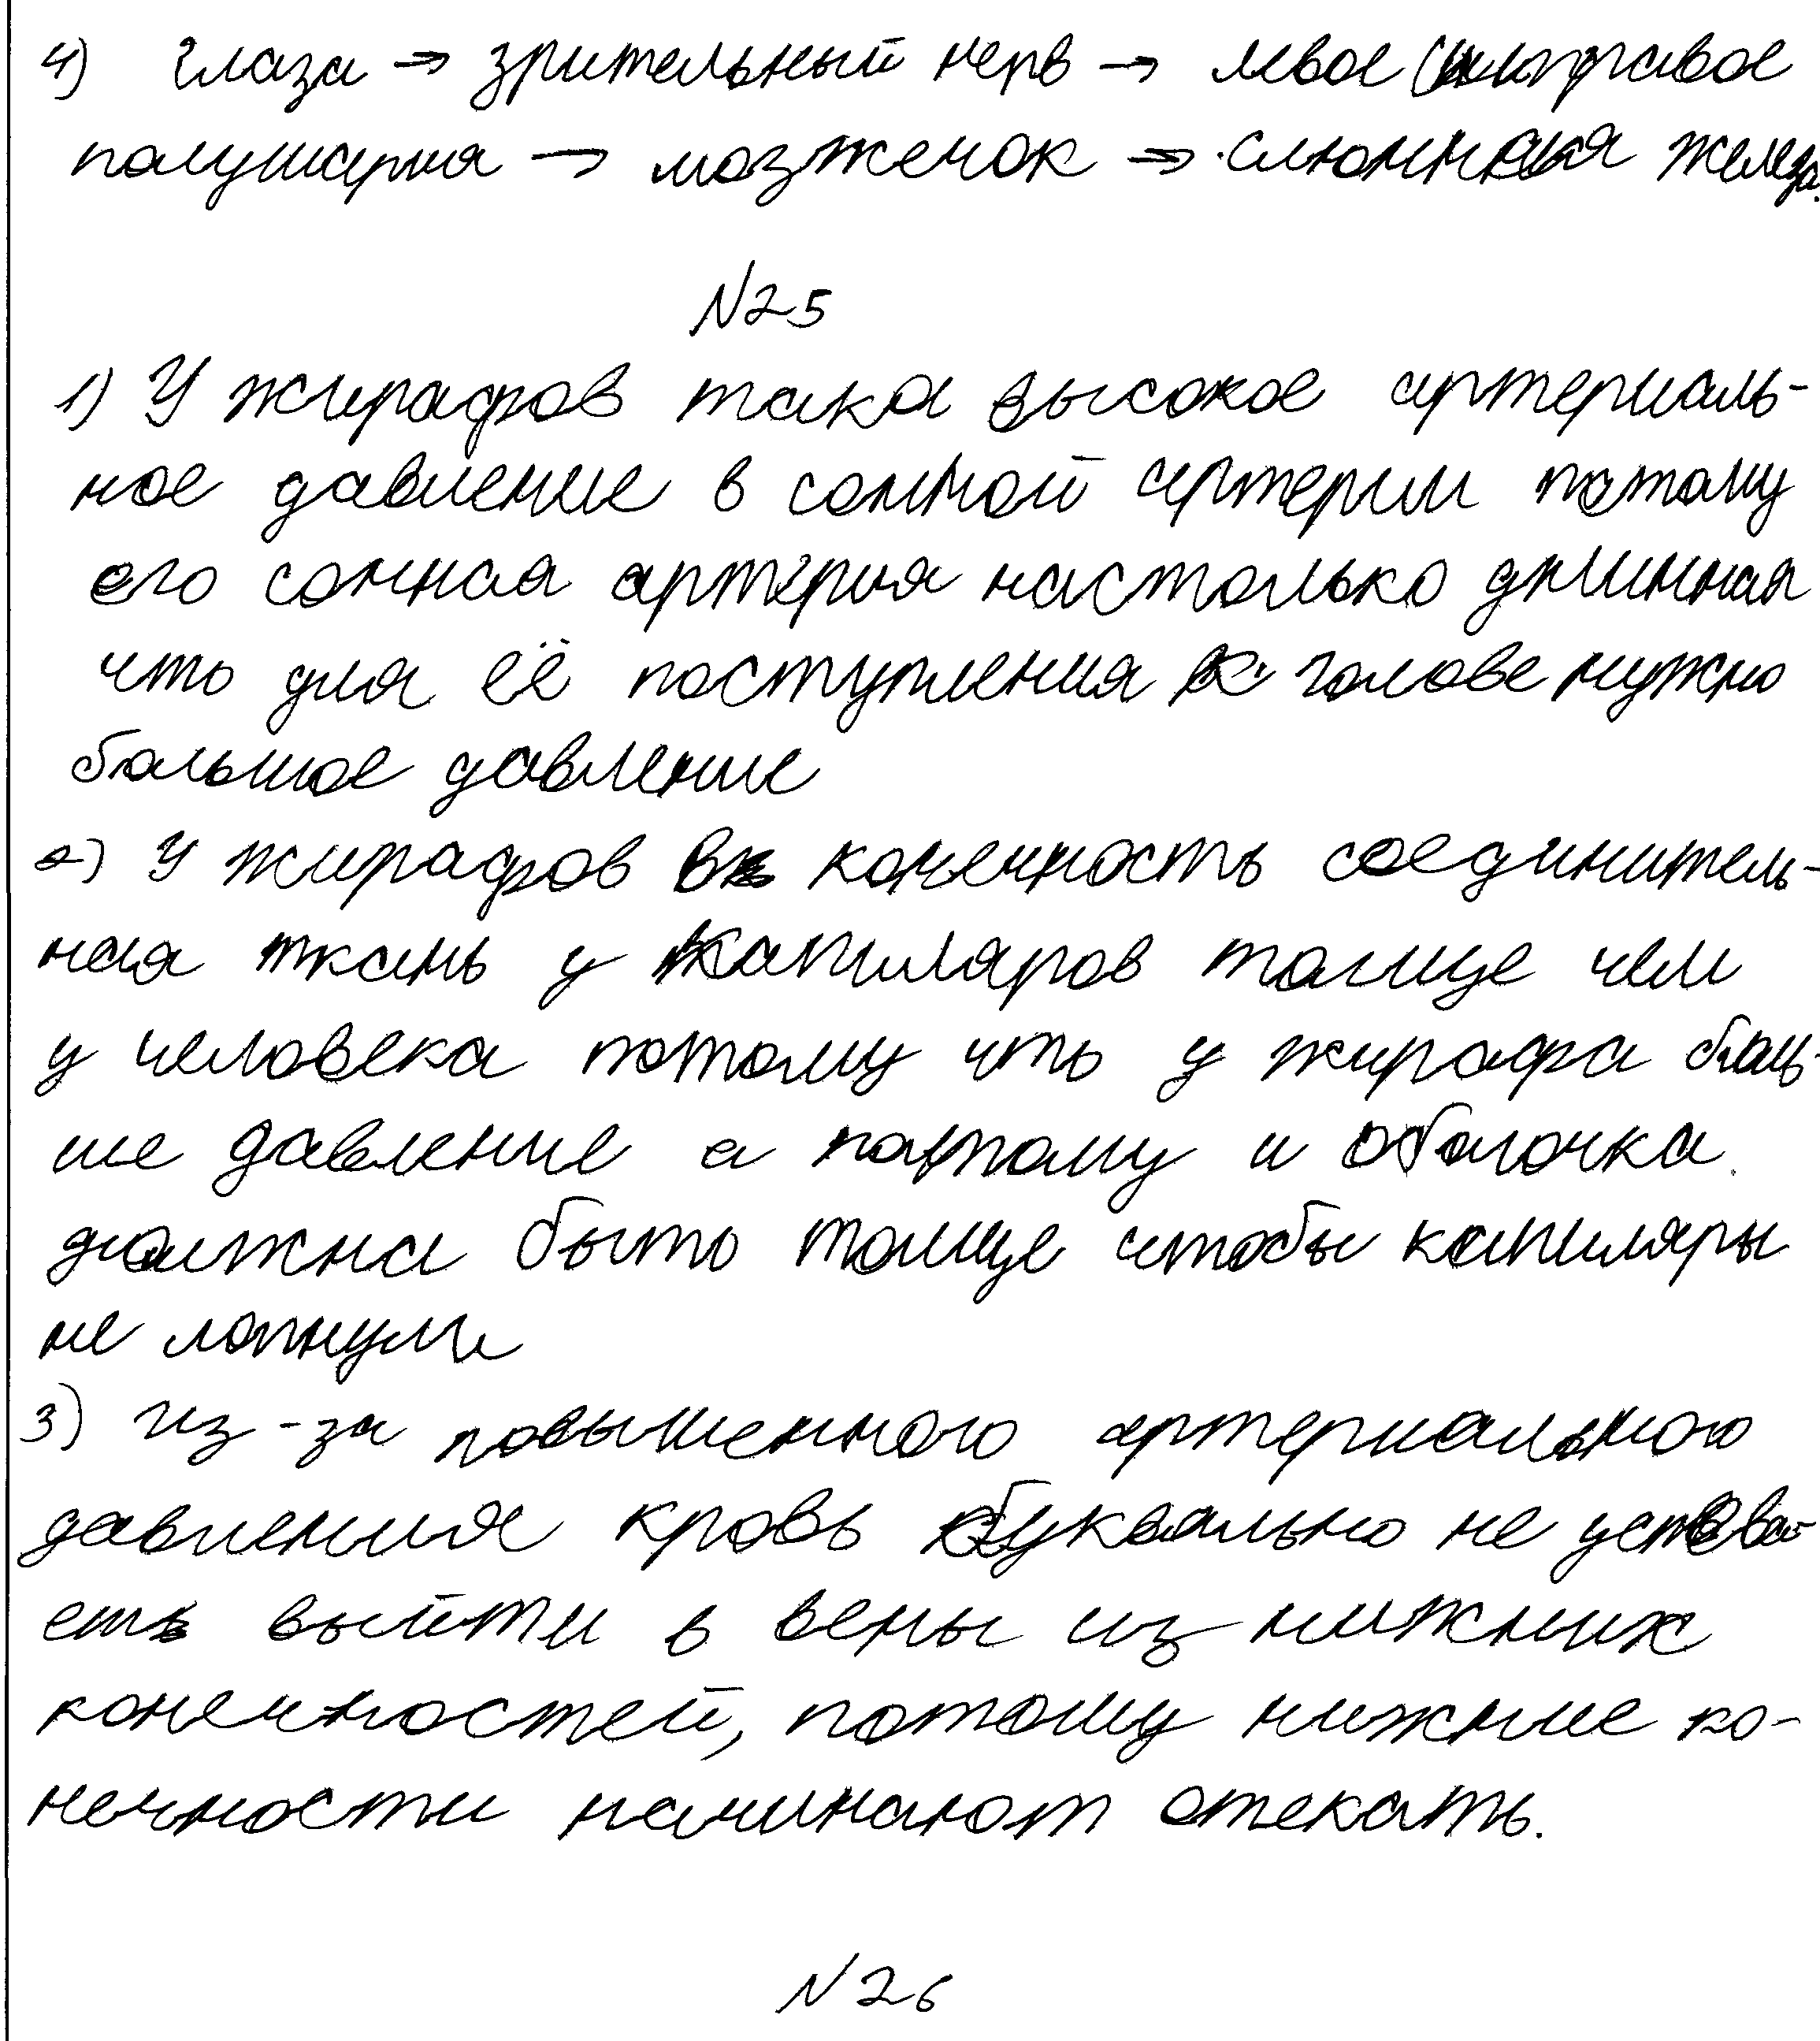 4) глаза → зрительный нерв → левое правое
полушария → мозжечок → слюнная железа.
N25
1) У жирафов така высокое артериаль-
ное давление в сонной артерии потому
его сонная артерия настолько длинная
что для её поступления к голове нужно
большое давление
2) У жирафов в конечность соединитель-
ная ткань у капиляров толще чем
у человека потому что у жирафа боль-
ше давление а поэтому и оболочка
должна быть толще чтобы капиляры
не лопнули
3) Из-за повышенного артериального
давления кровь буквально не успева-
еть выйти в вены из нижних
конечностей, потому нижние ко-
нечности начинают отекать.
N26